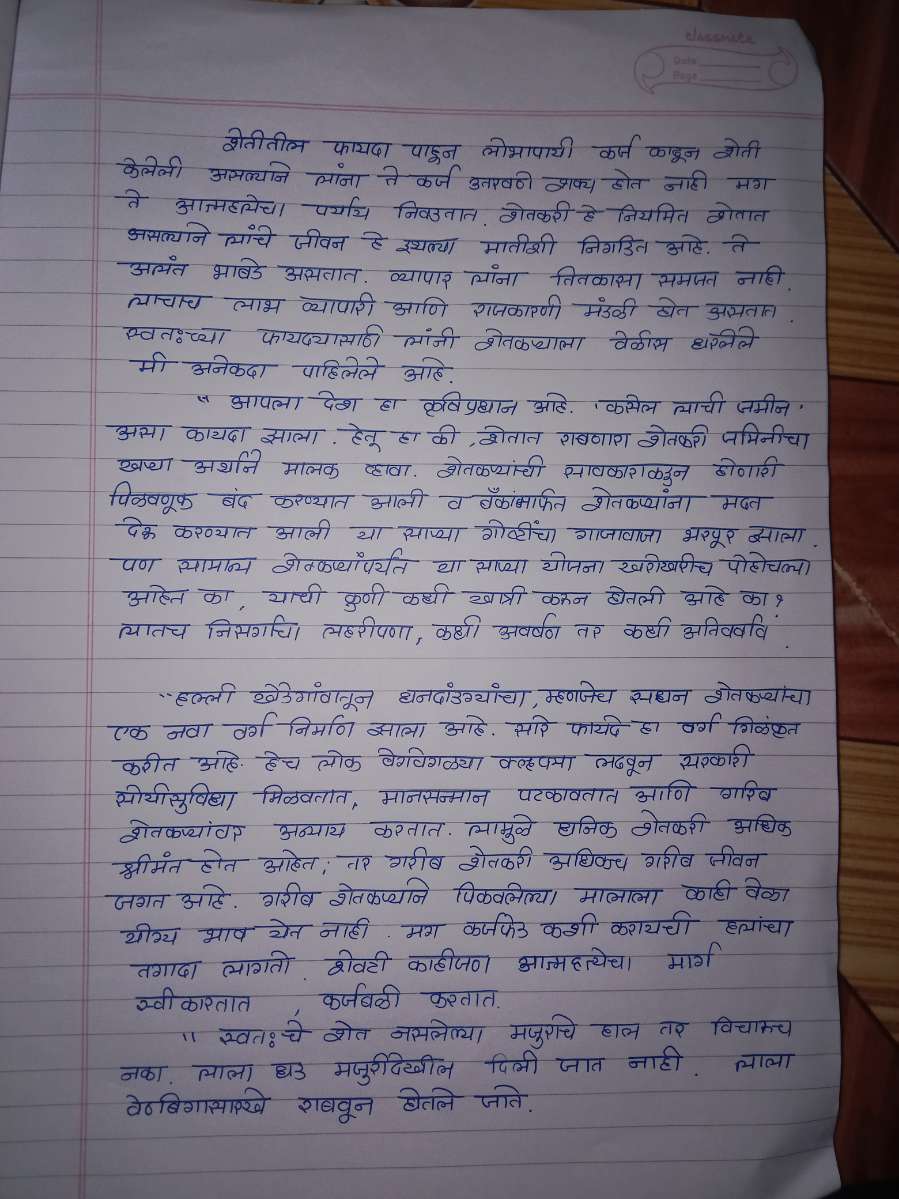 classmate
Date
Page
शेतीतील फायदा पाहून लोभापायी कर्ज काढून शेती
केलेली असल्याने त्यांना ते कर्ज उतरवणे शक्य होत नाही मग
ते आत्महत्येचा पर्याय निवडतात. शेतकरी हे नियमित शेतात
असल्याने त्यांचे जीवन हे इथल्या मातीशी निगडित आहे. ते
अत्यंत भाबडे असतात. व्यापार त्यांना तितकासा समजत नाही.
त्याचाच लाभ व्यापारी आणि राजकारणी मंडळी घेत असतात.
स्वतःच्या फायद्यासाठी त्यांनी शेतकऱ्याला वेळीस धरलेले
मी अनेकदा पाहिलेले आहे.
" आपला देश हा कृषिप्रधान आहे. 'कसेल त्याची जमीन'
असा कायदा झाला. हेतू हा की, शेतात राबणारा शेतकरी जमिनीचा
खऱ्या अर्थाने मालक व्हावा. शेतकऱ्यांची सावकाराकडून होणारी
पिळवणूक बंद करण्यात आली व बँकांमार्फत शेतकऱ्यांना मदत
देऊ करण्यात आली या साऱ्या गोष्टींचा गाजावाजा भरपूर झाला.
पण सामान्य शेतकऱ्यांपर्यंत या साऱ्या योजना खरोखरीच पोहोचल्या
आहेत का, याची कुणी कधी खात्री करून घेतली आहे का?
त्यातच निसर्गाचा लहरीपणा, कधी अवर्षण तर कधी अतिवर्षाव.
"हल्ली खेडेगांवातून धनदांडग्यांचा, म्हणजेच सधन शेतकऱ्यांचा
एक नवा वर्ग निर्माण झाला आहे. सारे फायदे हा वर्ग गिळंकृत
करीत आहे. हेच लोक वेगवेगळ्या क्लृप्त्या लढवून सरकारी
सोयीसुविधा मिळवतात, मानसन्मान पटकावतात आणि गरिब
शेतकऱ्यांवर अन्याय करतात. त्यामुळे धनिक शेतकरी अधिक
श्रीमंत होत आहेत; तर गरीब शेतकरी अधिकच गरीब जीवन
जगत आहे. गरीब शेतकऱ्याने पिकवलेल्या मालाला काही वेळा
योग्य भाव येत नाही. मग कर्जफेड कशी करायची हत्यांचा
तगादा लागतो. शेवटी काहीजण आत्महत्येचा मार्ग
स्वीकारतात , कर्जबळी करतात.
" स्वतःचे शेत नसलेल्या मजुराचे हाल तर विचारूच
नका. त्याला धड मजुरीदेखील दिली जात नाही. त्याला
वेठबिगासारखे राबवून घेतले जाते.